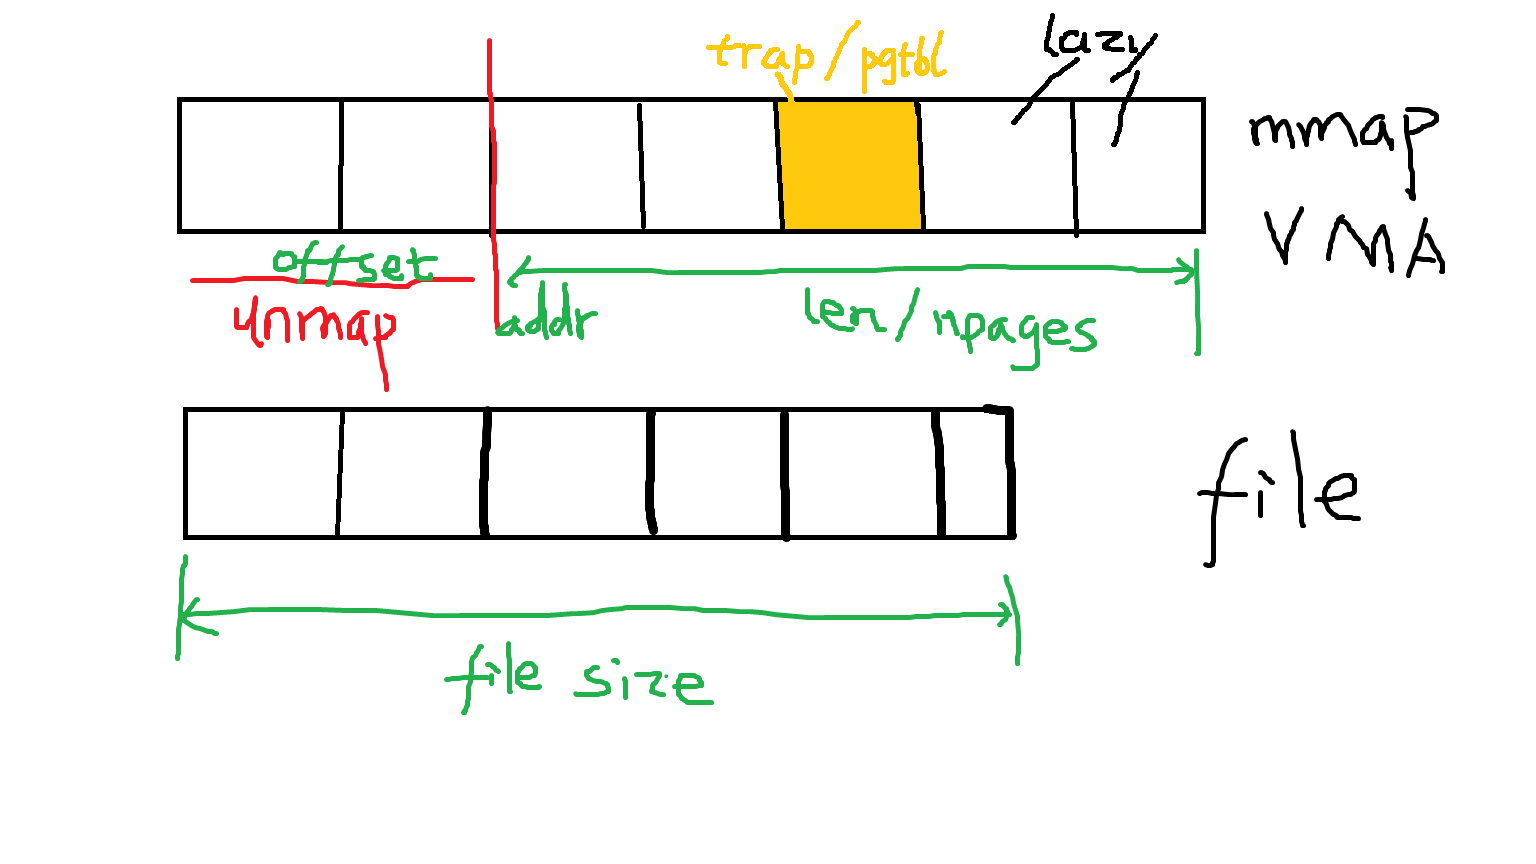 trap/pgtbl
lazy
mmap
VMA
offset
unmap
addr
len/npages
file
file size